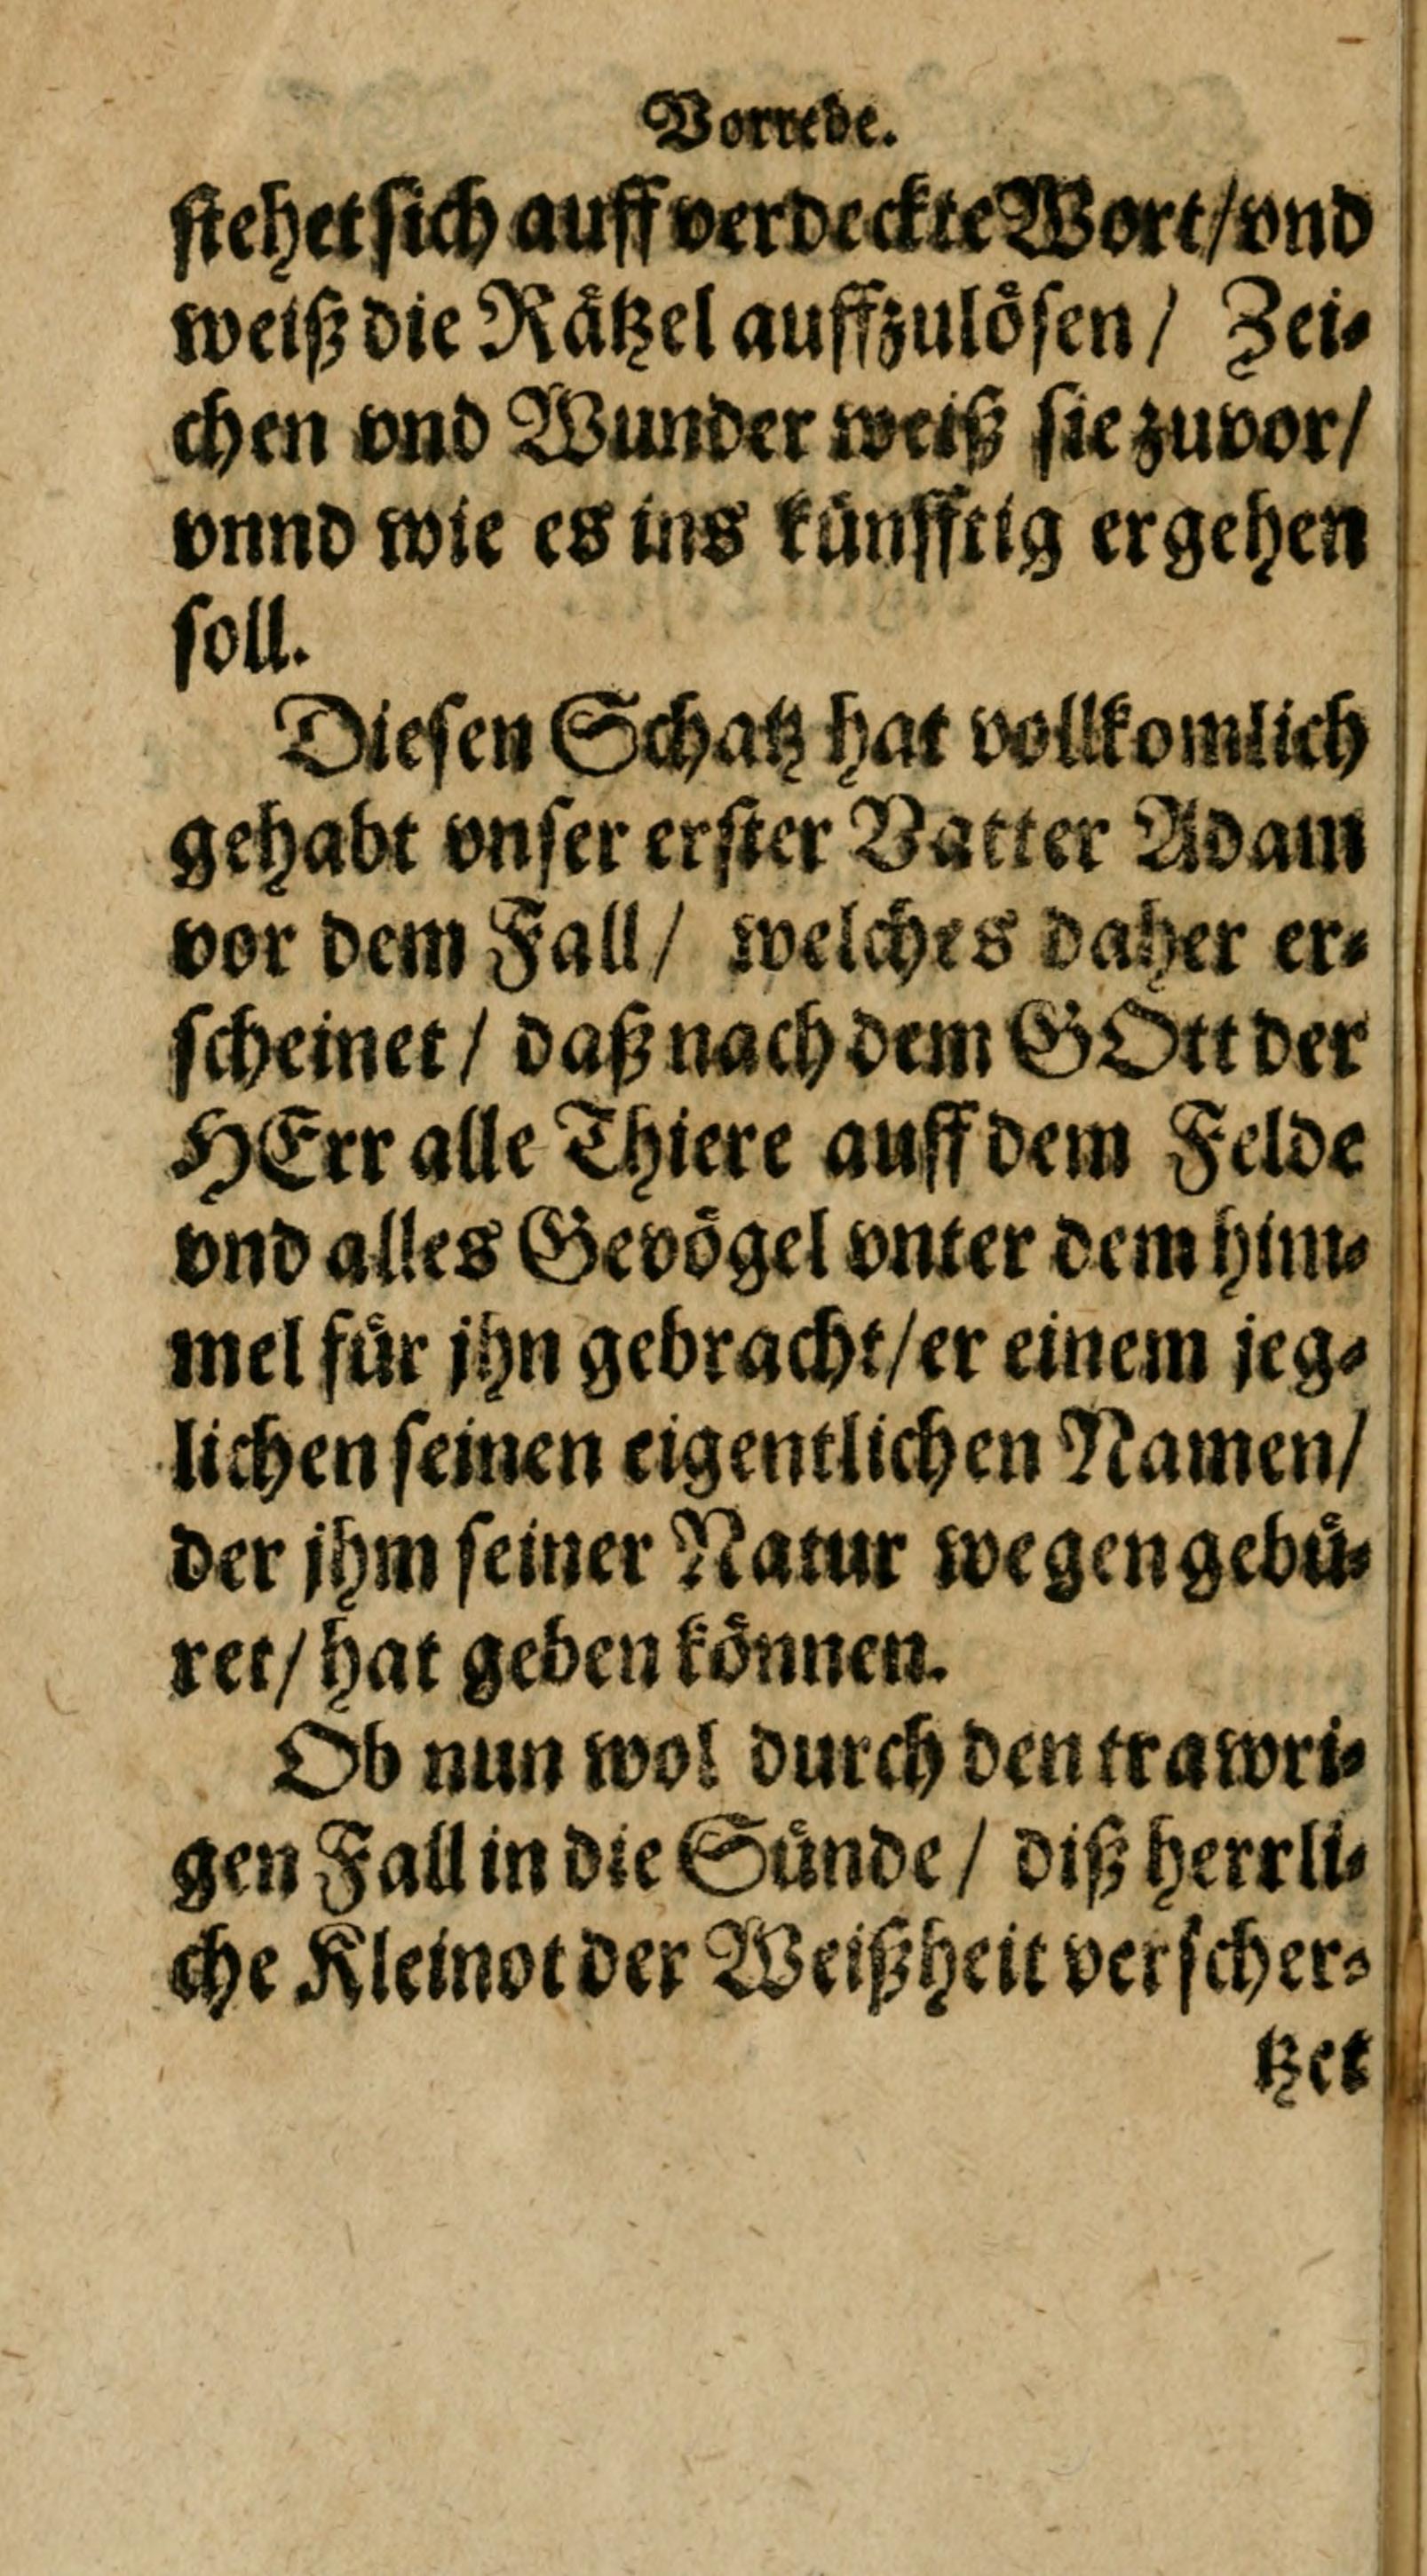 Vorrede.
stehet sich auff verdeckte Wort/ vnd
weiß die Rätzel auffzulösen/ Zei-
chen vnd Wunder weiß sie zuvor/
vnnd wie es ins künfftig ergehen
soll.
Diesen Schatz hat vollkomlich
gehabt vnser erster Vatter Adam
vor dem Fall/ welches daher er-
scheinet/ daß nach dem GOtt der
HErr alle Thiere auff dem Felde
vnd alles Gevögel vnter dem him-
mel für jhn gebracht/ er einem jeg-
lichen seinen eigentlichen Namen/
der jhm seiner Natur wegen gebü-
ret/ hat geben können.
Ob nun wol durch den trawri-
gen Fall in die Sünde/ diß herrli-
che Kleinot der Weißheit verscher-
tzet